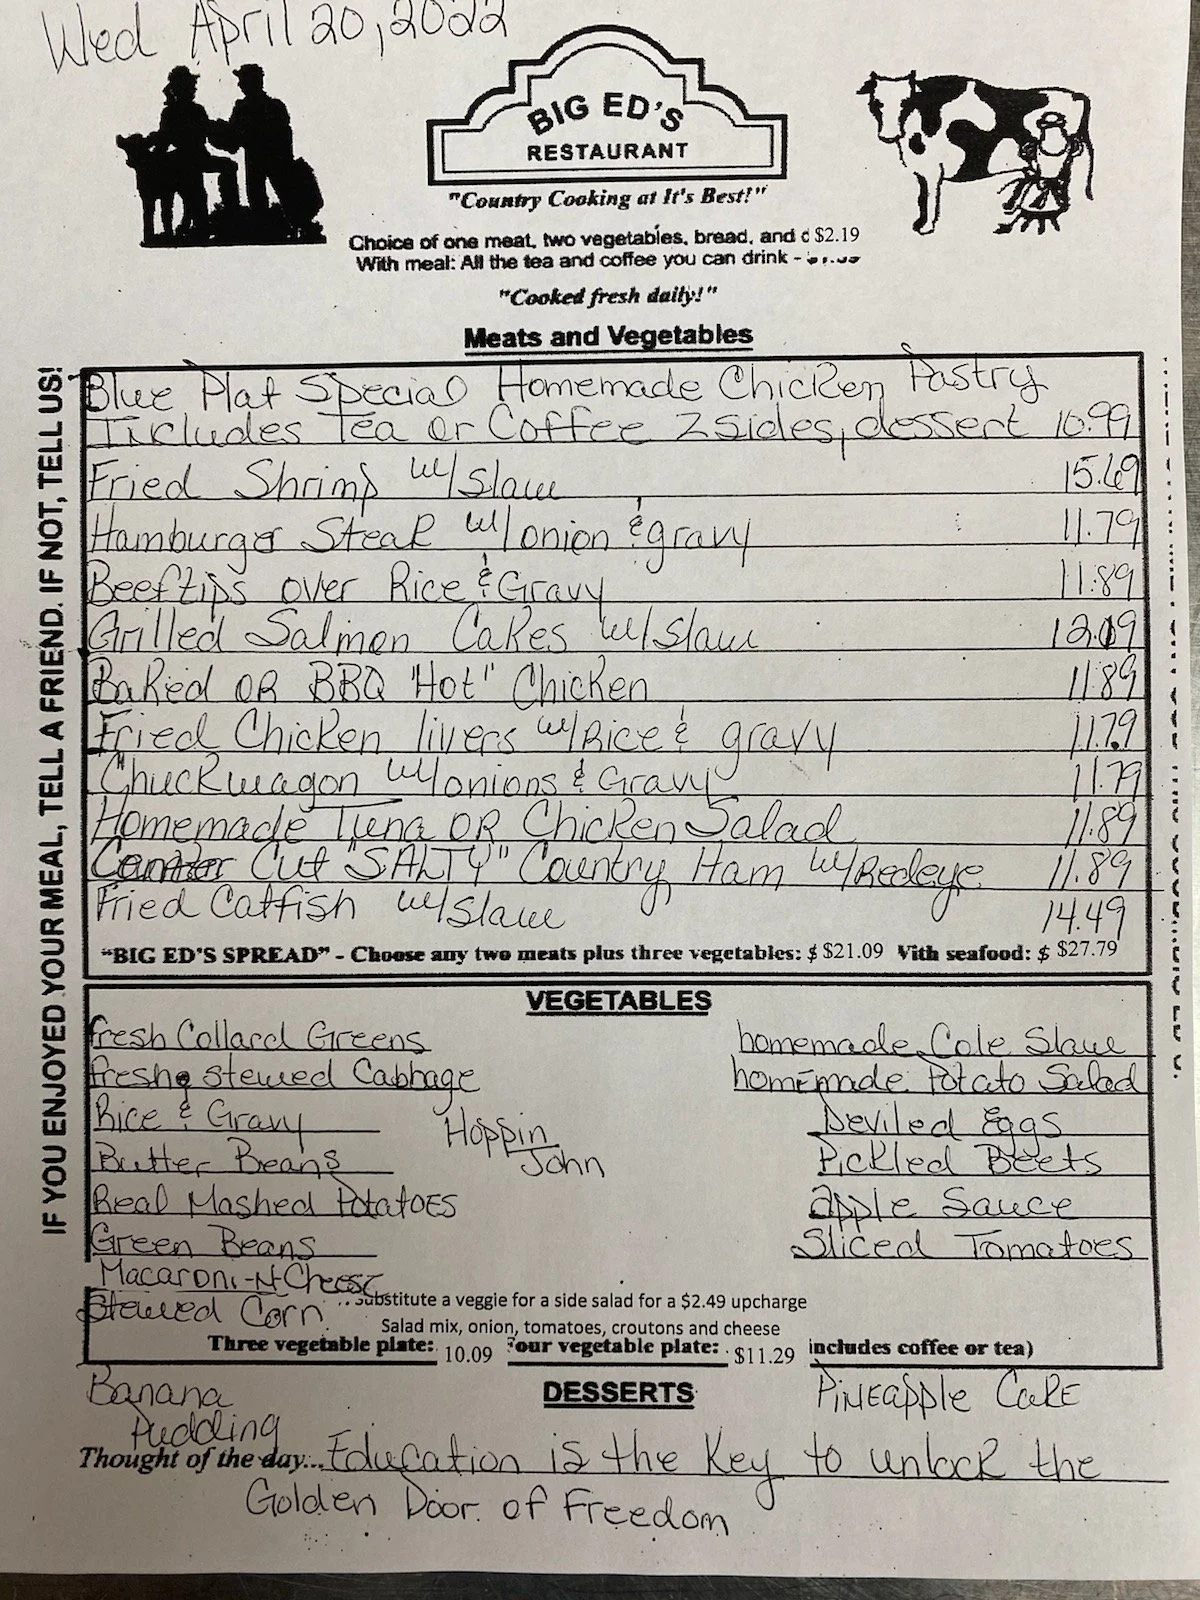 Wed April 20, 2022
BIG ED'S
RESTAURANT
"Country Cooking at It's Best!"
Choice of one meat, two vegetables, bread, and d $2.19
With meal: All the tea and coffee you can drink -
"Cooked fresh daily!"
Meats and Vegetables
IF YOU ENJOYED YOUR MEAL, TELL A FRIEND. IF NOT, TELL US!
Blue Plat Special Homemade Chicken Pastry
Includes Tea or Coffee 2 sides, dessert 10.99
Fried Shrimp w/slaw 15.69
Hamburger Steak w/onion & gravy 11.79
Beeftips over Rice & Gravy 11.89
Grilled Salmon Cakes w/slaw 12.09
Baked OR BBQ "Hot" Chicken 11.89
Fried Chicken livers w/Rice & gravy 11.79
Chuckwagon w/onions & Gravy 11.79
Homemade Tuna OR Chicken Salad 11.89
Center Cut "SALTY" Country Ham w/Redeye 11.89
Fried Catfish w/slaw 14.49
"BIG ED'S SPREAD" - Choose any two meats plus three vegetables: $ $21.09 With seafood: $ $27.79
VEGETABLES
fresh Collard Greens
fresh stewed Cabbage
Rice & Gravy
Butter Beans
Real Mashed Potatoes
Green Beans
Macaroni-N-Cheese
Stewed Corn
Hoppin
John
homemade Cole Slaw
homemade Potato Salad
Deviled Eggs
Pickled Beets
apple Sauce
Sliced Tomatoes
Substitute a veggie for a side salad for a $2.49 upcharge
Salad mix, onion, tomatoes, croutons and cheese
Three vegetable plate: 10.09 Four vegetable plate: $11.29 includes coffee or tea)
DESSERTS
Banana
Pudding
Pineapple Cake
Thought of the day... Education is the Key to unlock the
Golden Door of Freedom